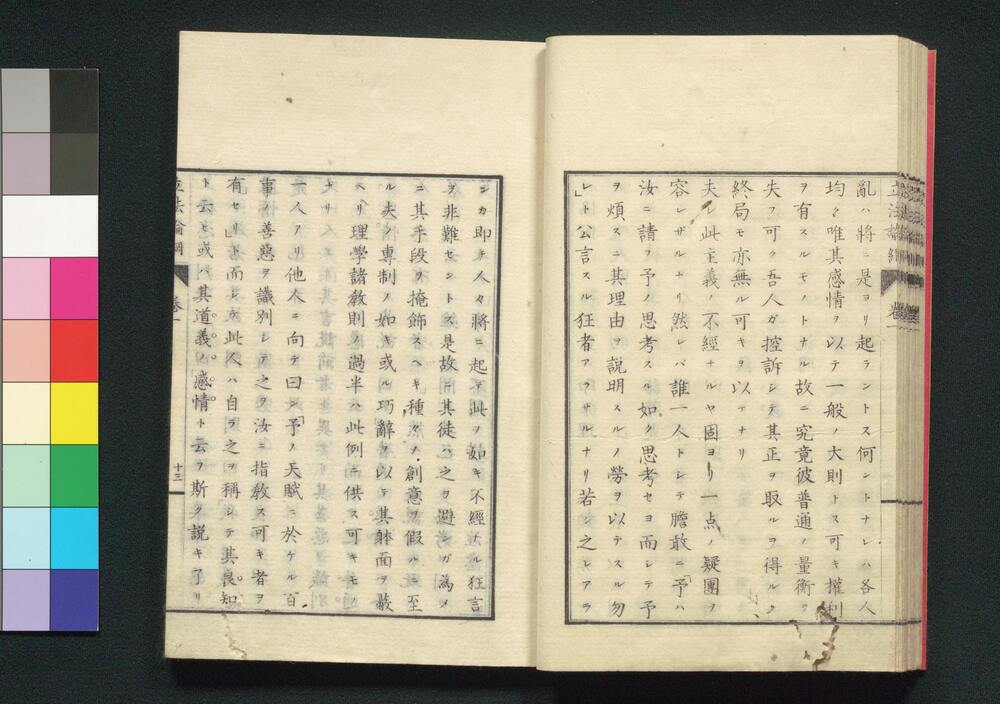 亂ハ將ニ是ヨリ起ラントス何ントナレハ各人
均ク唯其感情ヲ以テ一般ノ大則トス可キ權利
ヲ有スルモノトナル故ニ究竟彼普通ノ量衡ヲ
失フ可ク吾人ガ控訴シテ其正ヲ取ルヲ得ルノ
終局モ亦無ル可キヲ以テナリ
夫レ此主義ノ不經ナルヤ固ヨリ一点ノ疑團ヲ
容レザルナリ然レバ誰一人トシテ膽敢ニ「予ハ
汝ニ請フ予ノ思考スル如ク思考セヨ而シテ予
ヲ煩スニ其理由ヲ説明スルノ勞ヲ以テスル勿
レ」ト公言スル狂者アラザルナリ若シ之レアラ
ンカ即チ人々將ニ起テ此ノ如キ不經ナル狂言
ヲ非難セントス是故ニ其徒ハ之ヲ避ンガ為メ
ニ其手段ヲ掩飾スヘキ種々ノ創意ヲ假ルニ至
ル夫ノ專制ノ如キ或ル巧辭ヲ以テ其躰面ヲ蔽
ヘリ理學諸教則ノ過半ハ此例ニ供ス可キモノ
ナリ
一人アリ他人ニ向テ曰ク「予ノ天賦ニ於ケル百
事ノ善惡ヲ識別シテ之ヲ汝ニ指教ス可キ者ヲ
有セリ」ト而シテ此人ハ自ラ之ヲ稱シテ其良知
ト云ヒ或ハ其道義ノ感情ト云フ斯ク説キ了リ
立法論綱
卷一
十三